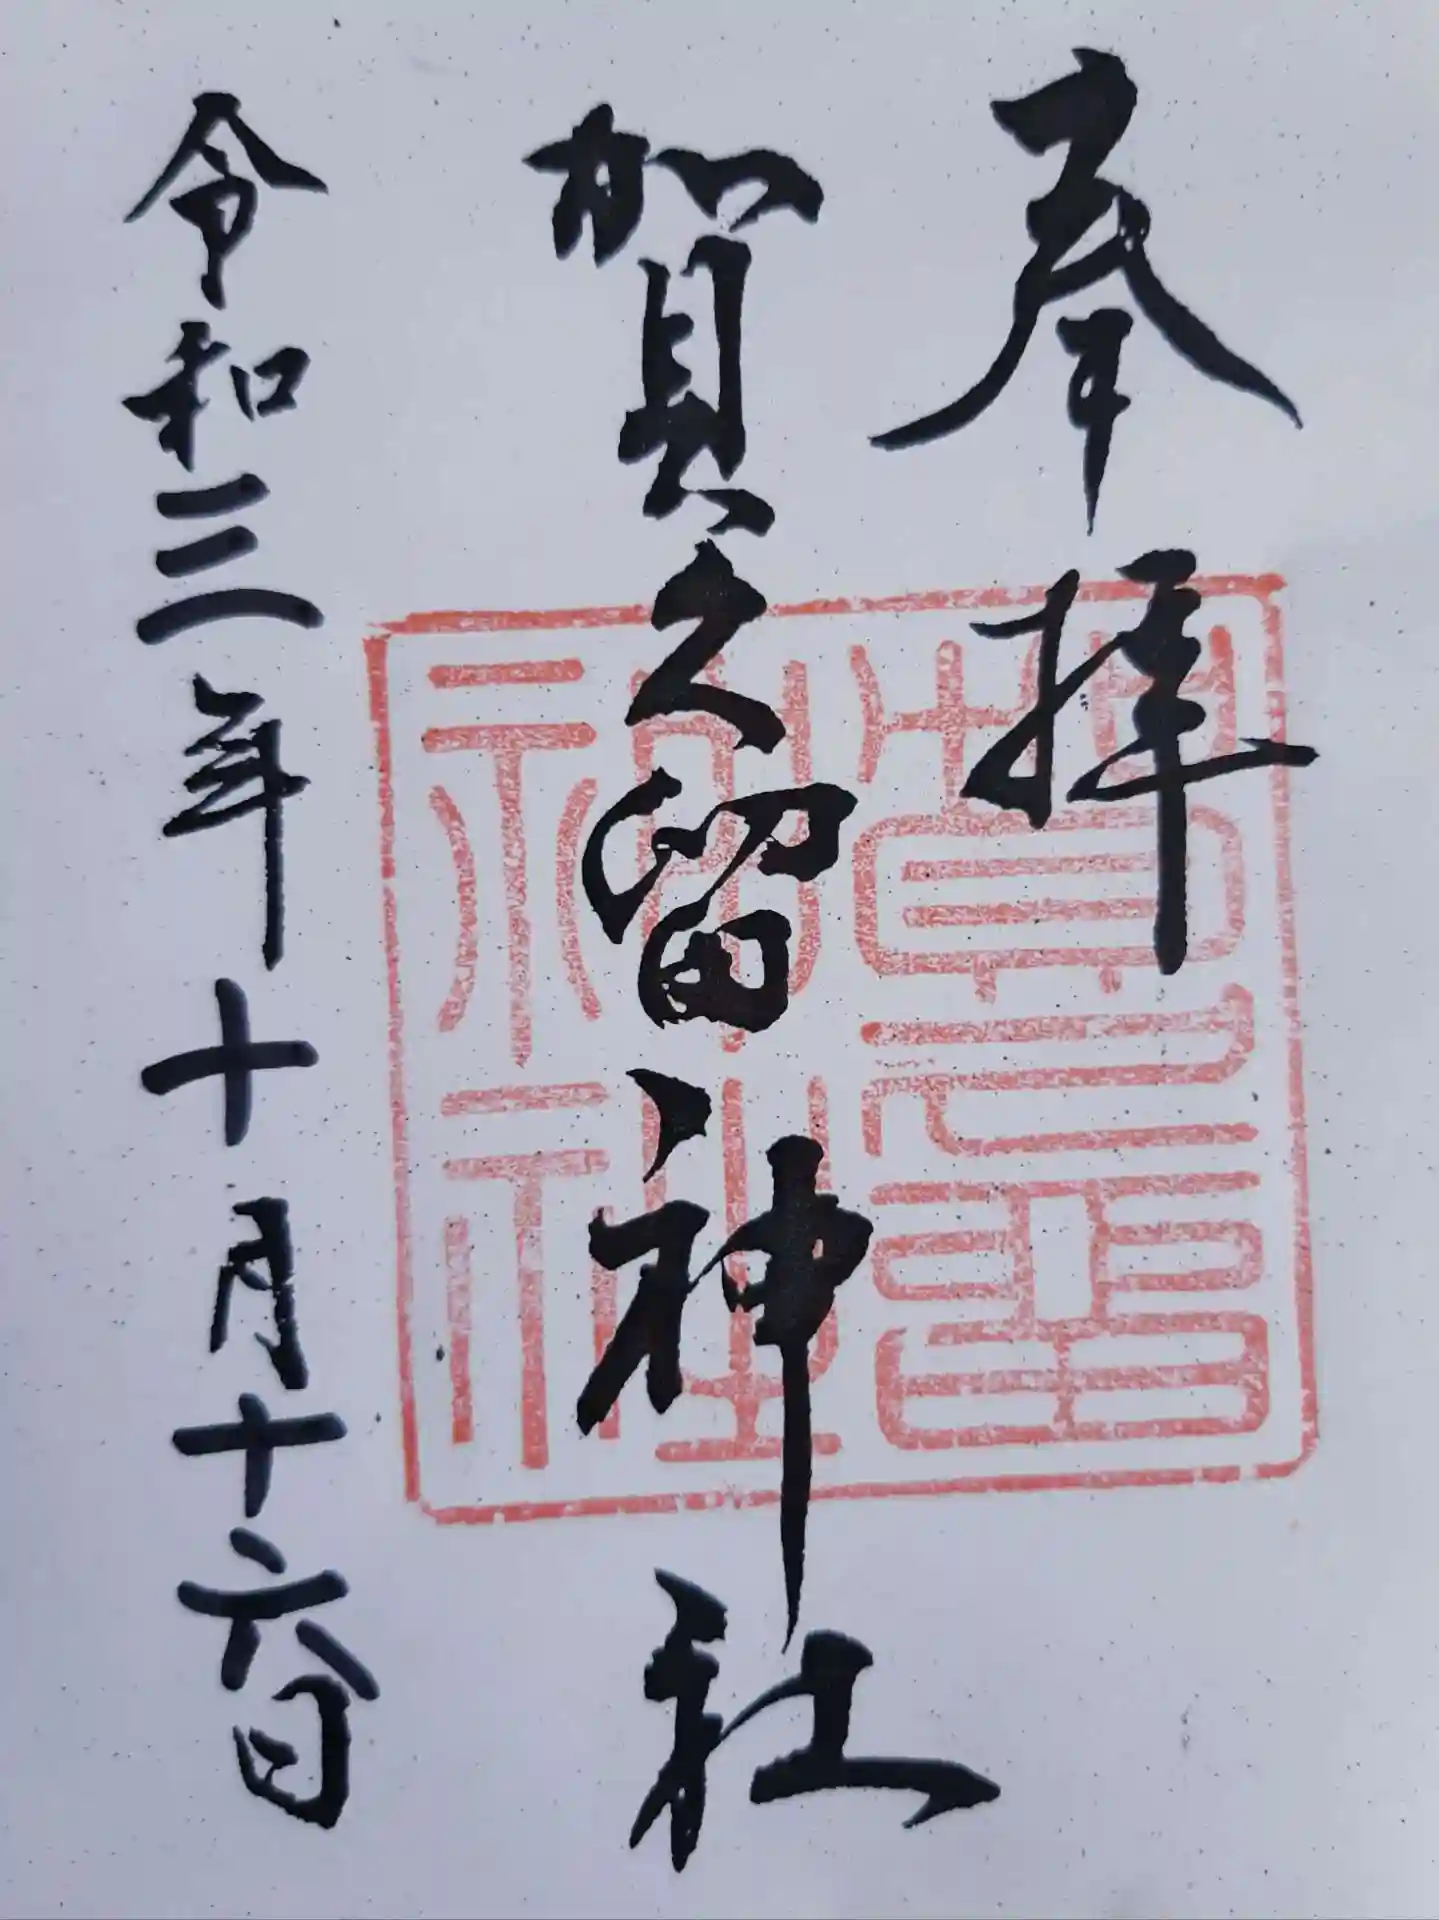 奉拝
賀久留神社
令和三年十月十六日
賀久留
神社